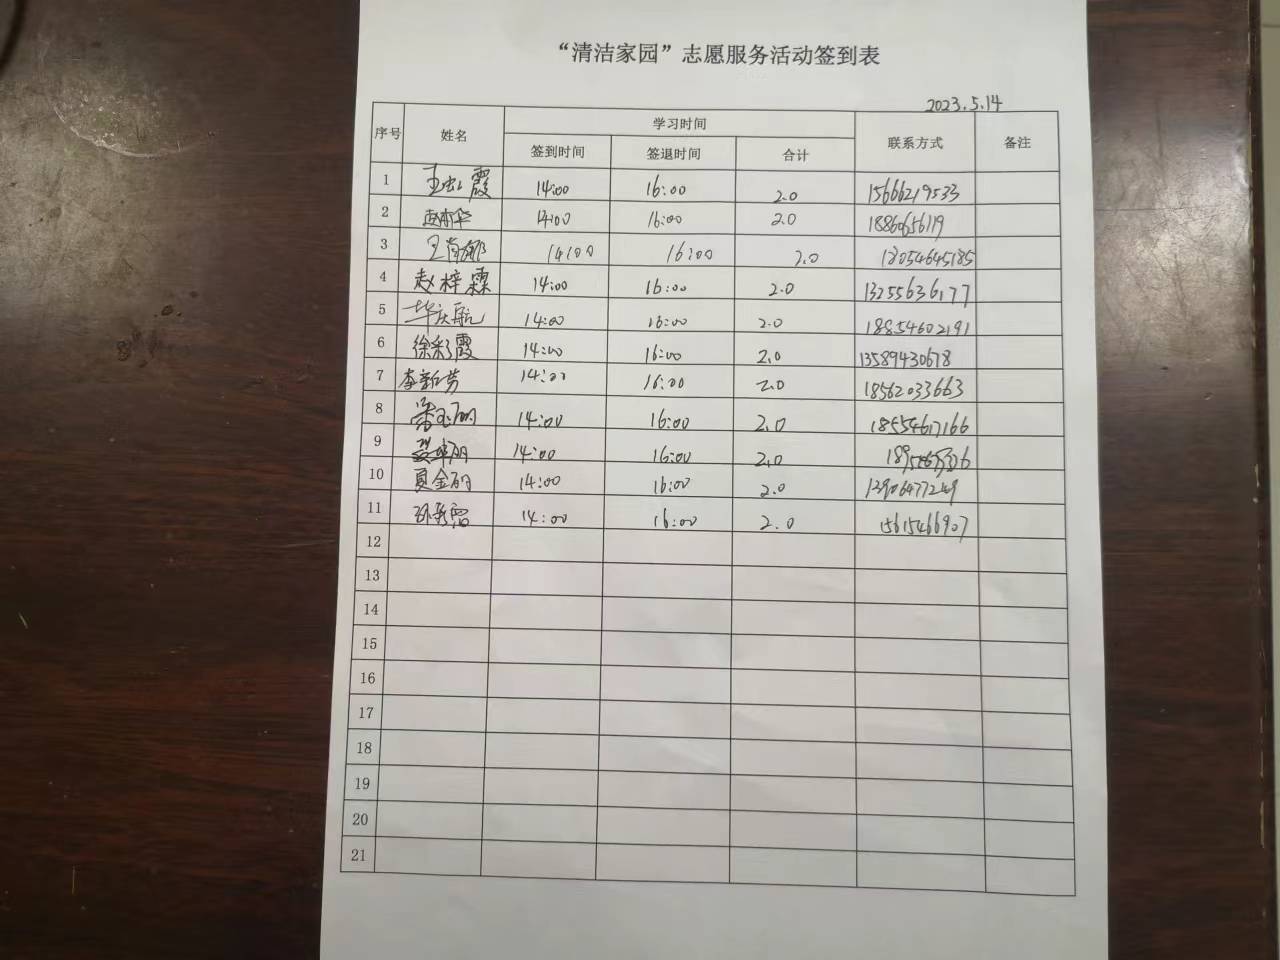 “清洁家园”志愿服务活动签到表
2023.5.14
序号 姓名 学习时间 联系方式 备注
签到时间 签退时间 合计
1 霞 14:00 16:00 2.0 15666219533
2 14:00 16:00 2.0 18860656119
3 王肖郁 14:00 16:00 2.0 18054645185
4 赵梓霖 14:00 16:00 2.0 13255636177
5 毕庆航 14:00 16:00 2.0 18854602191
6 徐彩霞 14:00 16:00 2.0 13589430678
7 李新芳 14:00 16:00 2.0 18562033663
8 14:00 16:00 2.0 18554617166
9 14:00 16:00 2.0
10 夏金丽 14:00 16:00 2.0 13906477249
11 14:00 16:00 2.0 15615466907
12
13
14
15
16
17
18
19
20
21